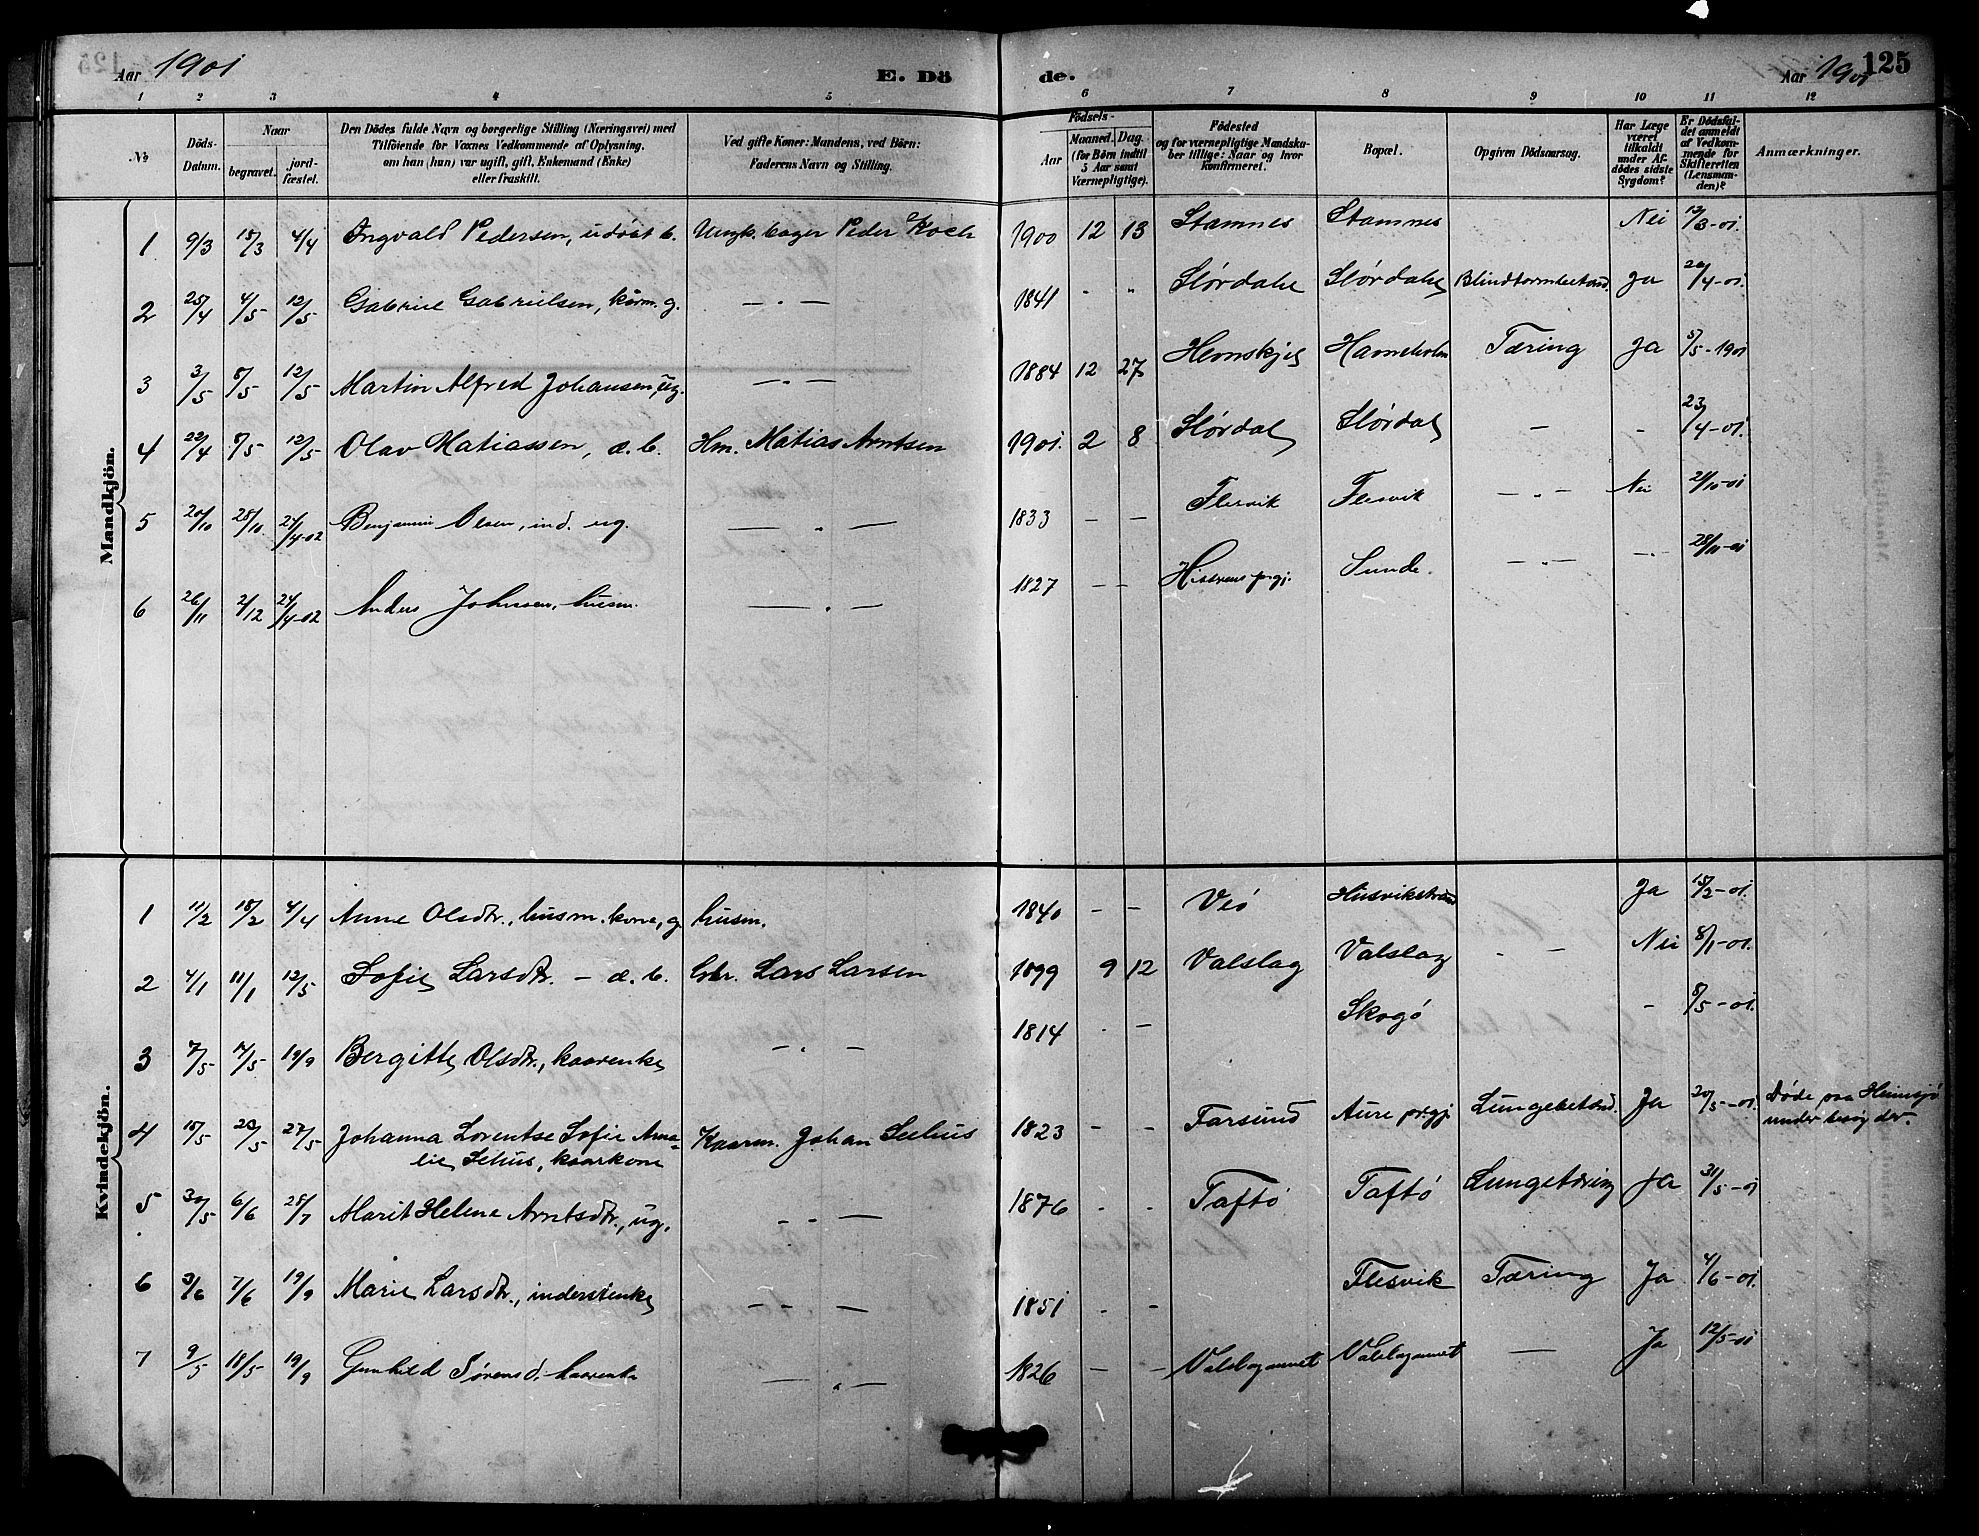 Aar 1901 E. Döde. Aar 1901 125
1 2 3 4 5 6 7 8 9 10 11 12
№ Döds-Datum. Naar begravet. jordfæstet. Den Dödes fulde Navn og borgerlige Stilling (Næringsvei) med Tilföiende for Voxnes Vedkommende af Oplysning, om han (hun) var ugift, gift, Enkemand (Enke) eller fraskilt. Ved gifte Koner: Mandens, ved Börn: Faderens Navn og Stilling. Födsels- Aar Maaned. Dag. (for Börn indtil 5 Aar samt Værnepligtige). Födested og for værnepligtige Mandskaber tillige: Naar og hvor konfirmeret. Bopæl. Opgiven Dödsaarsag. Har Læge været tilkaldt under Afdödes sidste Sygdom? Er Dödsfaldet anmeldt af Vedkommende for Skifteretten (Lensmanden)? Anmærkninger.
Mandkjön.
1 9/3 18/3 4/4 Ingvald Pedersen, udöbt b. Ungk. Peder Koch 1900 12 13 Stamnes Stamnes Nei 12/3-01.
2 25/4 4/5 12/5 Gabriel Gabrielsen, g. — " — 1841 - " Stördalen Stördalen ja 20/4-01.
3 3/5 8/5 12/5 Martin Alfred Johansen, ug. — " — 1884 12 27 Hemskjel Havneholm Tæring ja 5/5-1901
4 22/4 8/5 12/5 Olav Matiassen, æ. b. Hm. Matias Arntsen 1901. 2 8 Stördal Stördal — - 23/4-01.
5 20/10 28/10 24/4-02 Benjamin Olsen, ind. ug. — " — 1833 — — Flesvik Flesvik — " — Nei 21/10-01
6 26/11 2/12 24/4-02 Anders Johnsen, husm. — " — 1827 — — prgj. Sunde. — " — — 28/11-01
Kvindekjön.
1 11/2 18/2 4/4 Anne Olsdtr., husm. kone, g. husm. 1840 — — Veö Husvikstrand Ja 15/2-01.
2 4/1 11/1 12/5 Sofie Larsdtr. – æ. b. Gbr. Lars Larsen 1899 9 12 Valslag Valslag — Nei 8/1-01.
3 7/5 14/9 Bergitte Olsdtr., kaarenke — " — 1814 . — Skogö - 8/5-01.
4 15/5 20/5 27/5 Johanna Lorentse Sofie Amalie Selius, kaarkone Kaarm. Johan Selius 1823 — — Farsund Aure prgj. Lungebetænd. Ja 20/5-01. Döde paa Hemsjö under besög der.
5 30/5 6/6 28/7 Marit Helene Arntsdtr., ug. - " — 1876 - - Taftö Taftö Lungetæring Ja 31/5-01
6 3/6 7/6 19/9 Marie Larsdtr., inderstenke — — — 1851 - - Flesvik Tæring Ja 4/6-01.
7 9/5 18/5 19/9 Gunhild Sörensd. kaarenke — " — 1826 — — Valslagvannet Valslagvannet — Ja 12/5-01